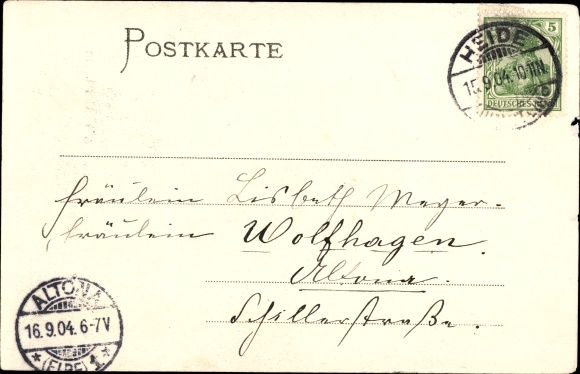 POSTKARTE
5
DEUTSCHES REICH
HEIDE
15.9.04.10-11N.
fräulein Lisbeth Meyer-
fräulein Wolfhagen.
Altona.
Schillerstraße.
ALTONA
16.9.04.6-7V
* (ELBE) 1 *